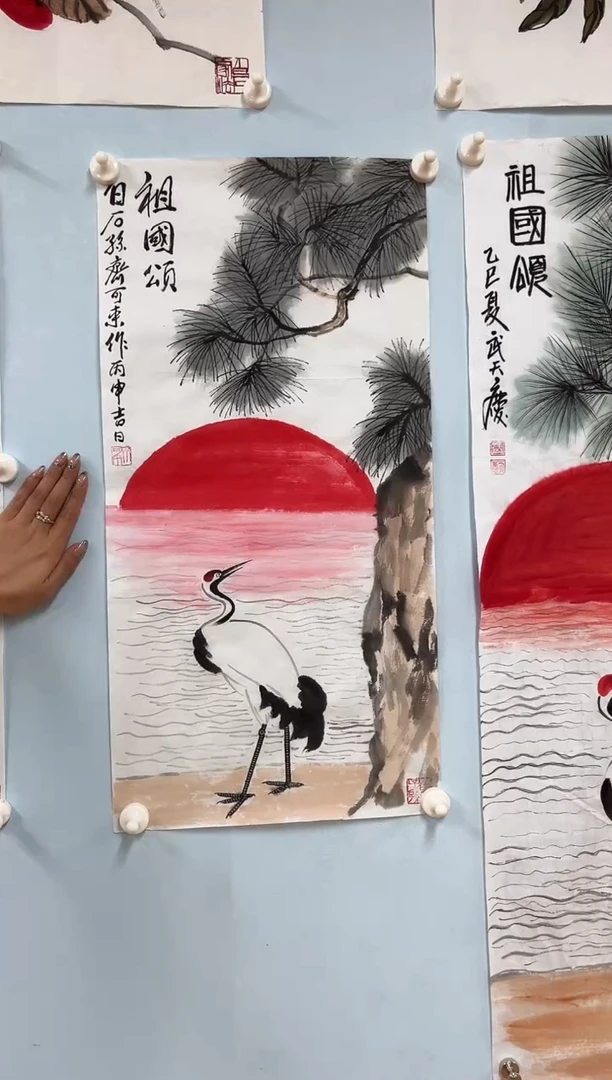 祖國頌
白石孫齊可來作丙申吉日
祖國頌
乙巳夏武天慶